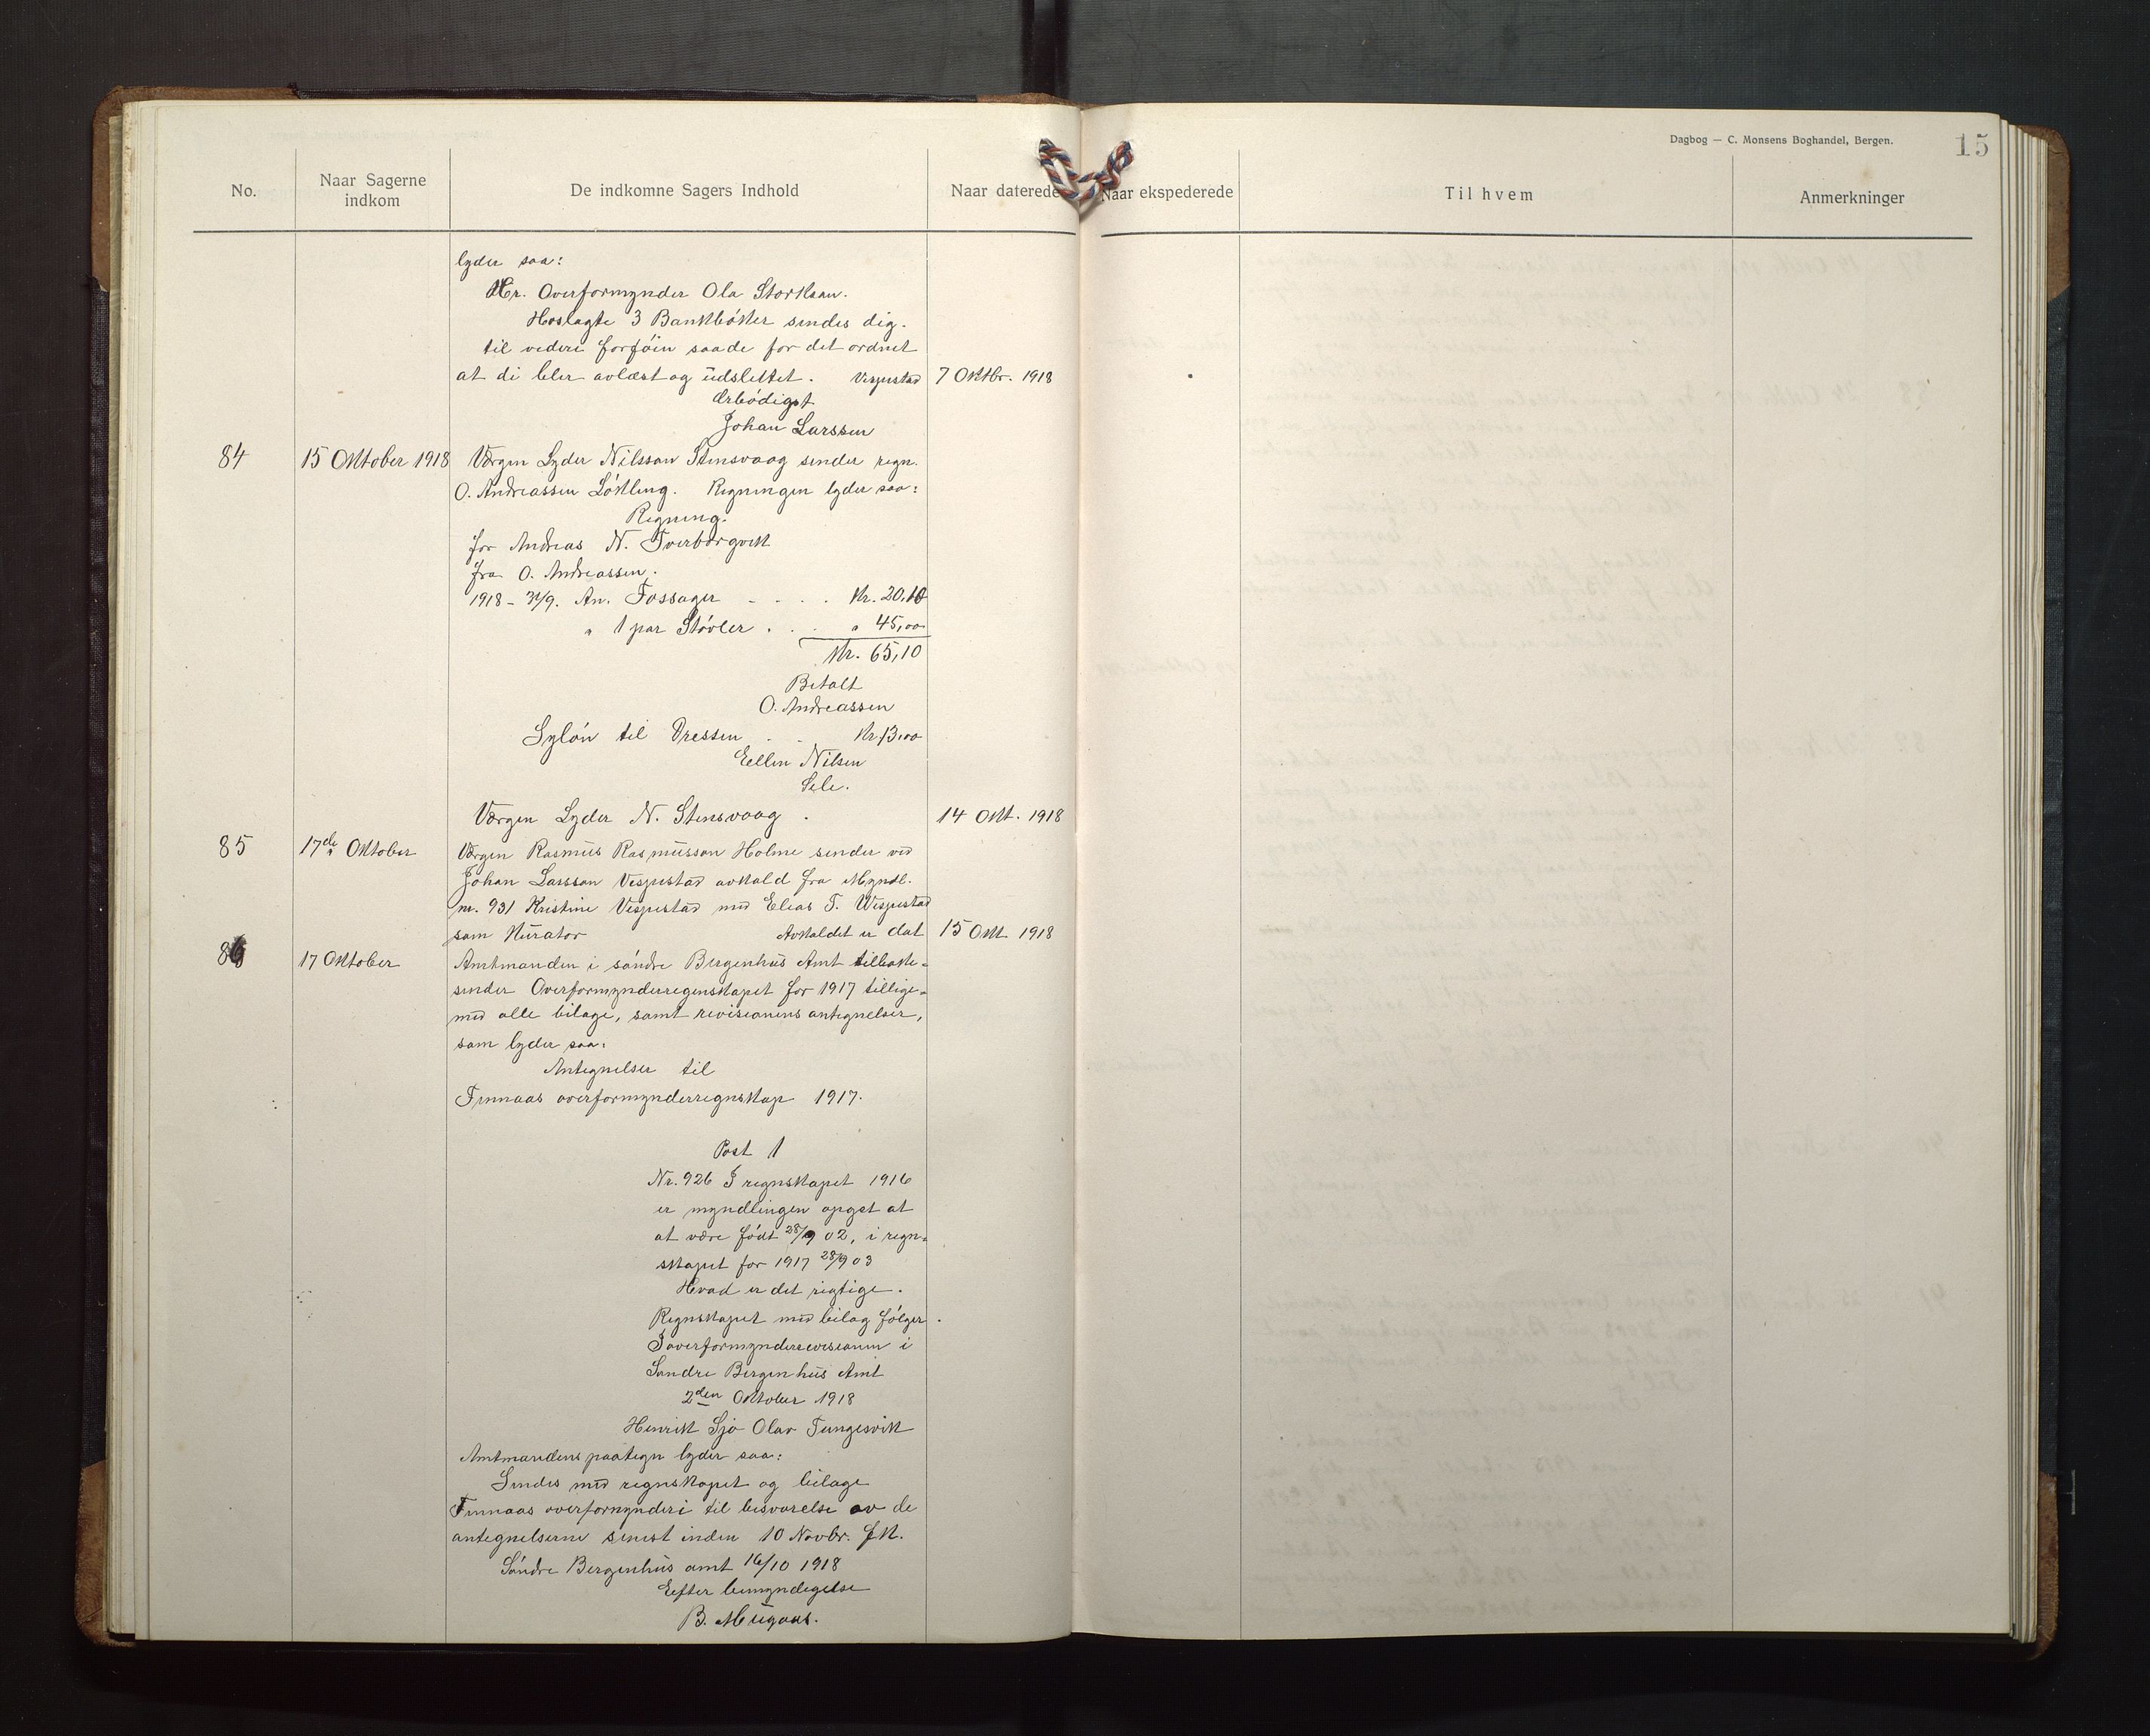 Dagbog — C. Monsens Boghandel, Bergen.
15
No.
Naar Sagerne indkom
De indkomne Sagers Indhold
Naar daterede
Naar ekspederede
Til hvem
Anmerkninger
lyder saa:
Hr. Overformynder Ola Storksan.
Hoslagte 3 Bankbøker sendes dig.
til videre forføin saa de for det ordnet
at di bler avlæst og udslettet. Vespestad 7 Oktbr. 1918
Ærbødigst
Johan Larssen
84 15 Oktober 1918 Værgen Lyder Nilsson Stensvaag sender regn.
O. Andreassen Løkling. Regningen lyder saa:
Regning.
for Andreas N. Tverborgvik
fra O. Andreassen.
1918 - 30/9. An. Tossager - . . . Kr. 20.10
" 1 par Støvler . . . " 45,00
Kr. 65,10
Betalt
O. Andreassen
Syløn til Dressen - - Kr. 13,00
Eellen Nilsen
Sele.
Værgen Lyder N. Stensvaag . 14 Okt. 1918
85 17de Oktober Værgen Rasmus Rasmusson Holme sender ved
Johan Larsson Vespestad avkald fra Myndl.
nr. 931 Kristine Vespestad med Elias T. Wespestad
som Kurator Avkaldet er dat 15 Okt 1918
86 17 Oktober Amtmanden i søndre Bergenhus Amt tilbake-
sender Overformynderregenskapet for 1917 tillige-
med alle bilage, samt revisionens antegnelser,
som lyder saa:
Antegnelser til
Finnaas overformynderregnskap 1917.
Post 1
Nr. 926 I regnskapet 1916
er myndlingen opget at
at være født 28/9 02, i regn-
skapet for 1917 28/9 03
Hvad er det rigtige.
Regnskapet med bilag følger.
I overformynderrevisionen i
Søndre Bergenhus Amt
2den Oktober 1918
Henrik Sjo Olav Tungesvik
Amtmandens paategn lyder saa:
Sendes med regnskapet og bilage
Finnaas overformynderi til besvarelse av de
antegnelserne senest inden 10 Novbr. fk.
Søndre Bergenhus amt 16/10 1918
Eefter bemyndegelse
B. Mugaas.